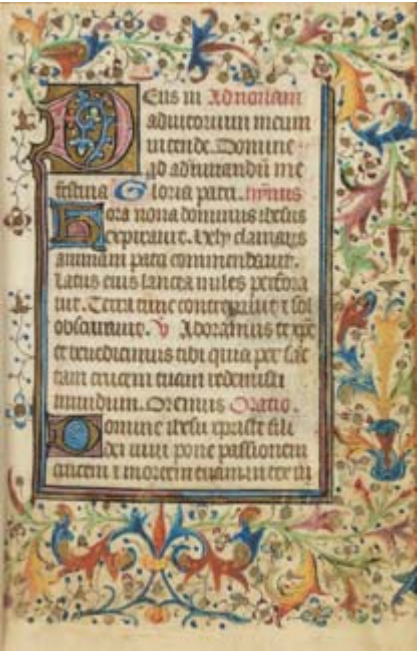 Deus in Ad nonam
adiutorium meum
intende. Domine
ad adiuuandū me
festina Gloria patri. ympnus
Hora nona dominus ihesus
expirauit. Hely clamans
animam patri commendauit.
Latus eius lancea miles perfora
uit. Terra tunc contremuit ⁊ sol
obscurauit. ℣ Adoramus te xpe
et benedicimus tibi quia per sāc
tam crucem tuam redemisti
mundum. Oremus Oratio.
Domine ihesu xpriste fili
dei uiui pone passionem
crucem ⁊ mortem tuam inter iu